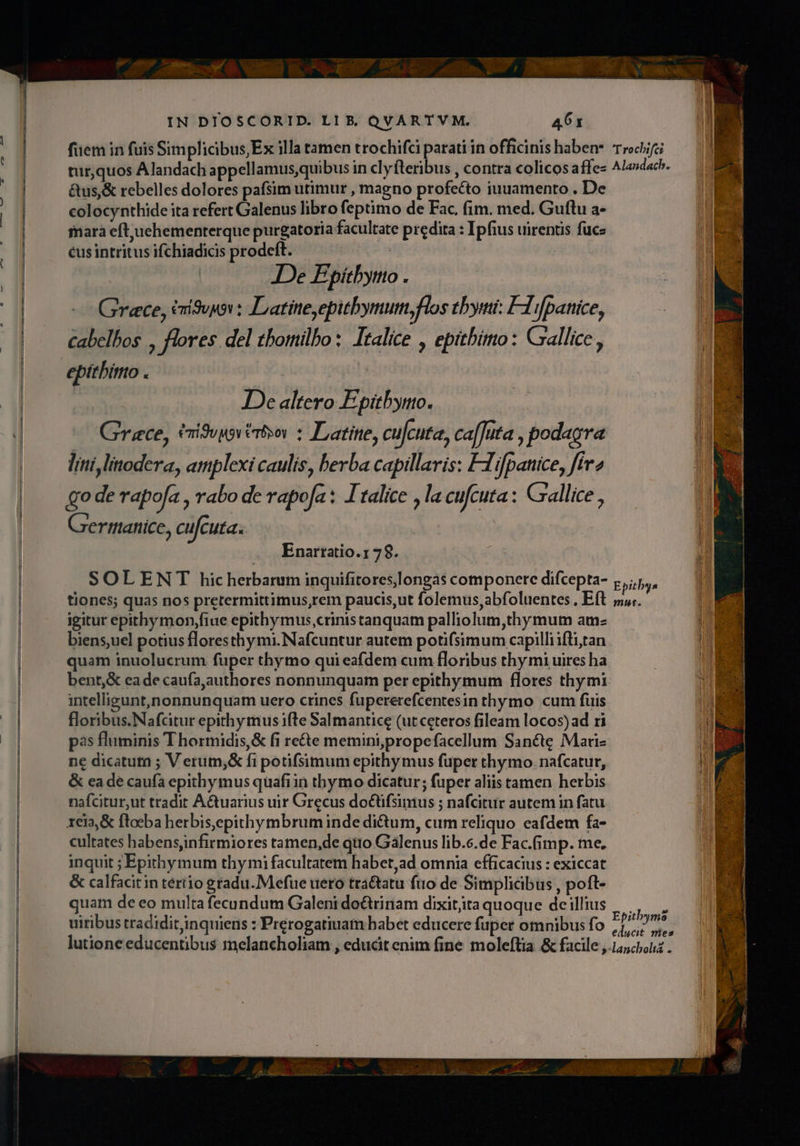 IN DIOSCORID. LIB. QVARTVM. 461
ſuem in ſuis Simplicibus, Ex illa tamen trochiſci parati in officinis haben- Trochiſci
tur, quos Alandach appellamus, quibus in clyſteribus, contra colicos affe- Alandach.
ctus, & rebelles dolores paſsim utimur, magno profecto iuuamento. De
colocynthide ita refert Galenus libro ſeptimo de Fac. ſim. med. Guſtu a-
mara eſt, uehementerque purgatoria facultate prędita: Ipſius uirentis ſuc-
cus intritus iſchiadicis prodeſt.
De Epithymo.
Græce, ἐπίθυμον: Latine, epithymum, flos thymi: Hiſpanice,
cabelhos, flores del thomilho: Italice, epithimo: Gallice,
epithimo.
De altero Epithymo.
Græce, ἐπίθυμον ἕτερον: Latine, cuſcuta, caſſuta, podagra
lini, linodera, amplexi caulis, herba capillaris: Hiſpanice, ſire-
go de rapoſa, rabo de rapoſa: Italice, la cuſcuta: Gallice,
Germanice, cuſcuta.
Enarratio. 178.
SOLENT hic herbarum inquiſitores, longas componere diſcepta- Epithy-
tiones; quas nos pretermittimus, rem paucis, ut ſolemus, abſoluentes. Eſt mus.
igitur epithymon, ſiue epithymus, crinis tanquam palliolum, thymum am-
biens, uel potius flores thymi. Naſcuntur autem potiſsimum capilli iſti, tan
quam inuolucrum ſuper thymo qui eaſdem cum floribus thymi uires ha
bent, & ea de cauſa, authores nonnunquam per epithymum flores thymi
intelligunt, nonnunquam uero crines ſupererefcentes in thymo cum ſuis
floribus. Naſcitur epithymus iſte Salmantice (ut ceteros ſileam locos) ad ri
pas fluminis Thormidis, & ſi recte memini, prope ſacellum Sancte Marie-
nę dicatum; Verum, & ſi potiſsimum epithymus ſuper thymo naſcatur,
& ea de cauſa epithymus quaſi in thymo dicatur; ſuper aliis tamen herbis
naſcitur, ut tradit Actuarius uir Gręcus doctiſsimus; naſcitur autem in ſatu
reia, & ſtœba herbis, epithymbrum inde dictum, cum reliquo eaſdem fa-
cultates habens, infirmiores tamen, de quo Galenus lib. 6. de Fac. ſimp. me.
inquit; Epithymum thymi facultatem habet, ad omnia efficacius: exiccat
& calfacit in tertio gradu. Meſue uero tractatu ſuo de Simplicibus, poſt-
quam de eo multa ſecundum Galeni doctrinam dixit, ita quoque de illius
uiribus tradidit, inquiens: Prerogatiuam habet educere ſuper omnibus ſo Epithymū
lutione educentibus melancholiam, educit enim ſine moleſtia & facile, educit me-
lancholiā.